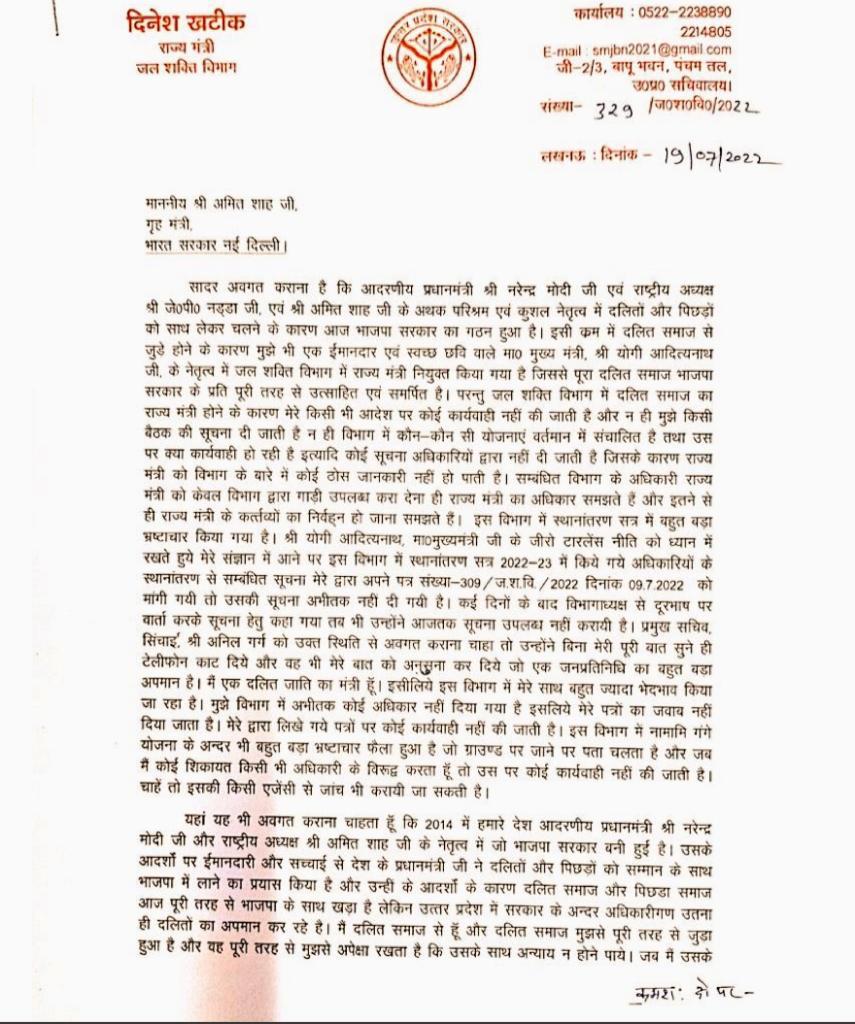 दिनेश खटीक
राज्य मंत्री
जल शक्ति विभाग
उत्तर प्रदेश सरकार
कार्यालय : 0522-2238890
2214805
E-mail : smjbn2021@gmail.com
जी-2/3, बापू भवन, पंचम तल,
उ0प्र0 सचिवालय।
संख्या- 329 /ज0श0वि0/2022
लखनऊ : दिनांक - 19/07/2022
माननीय श्री अमित शाह जी,
गृह मंत्री,
भारत सरकार नई दिल्ली।
सादर अवगत कराना है कि आदरणीय प्रधानमंत्री श्री नरेन्द्र मोदी जी एवं राष्ट्रीय अध्यक्ष
श्री जे0पी0 नड्डा जी, एवं श्री अमित शाह जी के अथक परिश्रम एवं कुशल नेतृत्व में दलितों और पिछड़ों
को साथ लेकर चलने के कारण आज भाजपा सरकार का गठन हुआ है। इसी क्रम में दलित समाज से
जुडे होने के कारण मुझे भी एक ईमानदार एवं स्वच्छ छवि वाले मा0 मुख्य मंत्री, श्री योगी आदित्यनाथ
जी, के नेतृत्व में जल शक्ति विभाग में राज्य मंत्री नियुक्त किया गया है जिससे पूरा दलित समाज भाजपा
सरकार के प्रति पूरी तरह से उत्साहित एवं समर्पित है। परन्तु जल शक्ति विभाग में दलित समाज का
राज्य मंत्री होने के कारण मेरे किसी भी आदेश पर कोई कार्यवाही नहीं की जाती है और न ही मुझे किसी
बैठक की सूचना दी जाती है न ही विभाग में कौन-कौन सी योजनाएं वर्तमान में संचालित है तथा उस
पर क्या कार्यवाही हो रही है इत्यादि कोई सूचना अधिकारियों द्वारा नहीं दी जाती है जिसके कारण राज्य
मंत्री को विभाग के बारे में कोई ठोस जानकारी नहीं हो पाती है। सम्बंधित विभाग के अधिकारी राज्य
मंत्री को केवल विभाग द्वारा गाड़ी उपलब्ध करा देना ही राज्य मंत्री का अधिकार समझते हैं और इतने से
ही राज्य मंत्री के कर्त्तव्यों का निर्वहन हो जाना समझते हैं। इस विभाग में स्थानांतरण सत्र में बहुत बड़ा
भ्रष्टाचार किया गया है। श्री योगी आदित्यनाथ, मा0मुख्यमंत्री जी के जीरो टारलेंस नीति को ध्यान में
रखते हुये मेरे संज्ञान में आने पर इस विभाग में स्थानांतरण सत्र 2022-23 में किये गये अधिकारियों के
स्थानांतरण से सम्बंधित सूचना मेरे द्वारा अपने पत्र संख्या-309/ज.श.वि./2022 दिनांक 09.7.2022 को
मांगी गयी तो उसकी सूचना अभीतक नहीं दी गयी है। कई दिनों के बाद विभागाध्यक्ष से दूरभाष पर
वार्ता करके सूचना हेतु कहा गया तब भी उन्होंने आजतक सूचना उपलब्ध नहीं करायी है। प्रमुख सचिव,
सिंचाई, श्री अनिल गर्ग को उक्त स्थिति से अवगत कराना चाहा तो उन्होंने बिना मेरी पूरी बात सुने ही
टेलीफोन काट दिये और वह भी मेरे बात को अनुसुना कर दिये जो एक जनप्रतिनिधि का बहुत बडा
अपमान है। मैं एक दलित जाति का मंत्री हूँ। इसीलिये इस विभाग में मेरे साथ बहुत ज्यादा भेदभाव किया
जा रहा है। मुझे विभाग में अभीतक कोई अधिकार नहीं दिया गया है इसलिये मेरे पत्रों का जवाब नहीं
दिया जाता है। मेरे द्वारा लिखे गये पत्रों पर कोई कार्यवाही नहीं की जाती है। इस विभाग में नामामि गंगे
योजना के अन्दर भी बहुत बड़ा भ्रष्टाचार फैला हुआ है जो ग्राउण्ड पर जाने पर पता चलता है और जब
मैं कोई शिकायत किसी भी अधिकारी के विरूद्व करता हूँ तो उस पर कोई कार्यवाही नहीं की जाती है।
चाहें तो इसकी किसी एजेंसी से जांच भी करायी जा सकती है।
यहां यह भी अवगत कराना चाहता हूँ कि 2014 में हमारे देश आदरणीय प्रधानमंत्री श्री नरेन्द्र
मोदी जी और राष्ट्रीय अध्यक्ष श्री अमित शाह जी के नेतृत्व में जो भाजपा सरकार बनी हुई है। उसके
आदर्शो पर ईमानदारी और सच्चाई से देश के प्रधानमंत्री जी ने दलितों और पिछड़ों को सम्मान के साथ
भाजपा में लाने का प्रयास किया है और उन्हीं के आदर्शो के कारण दलित समाज और पिछडा समाज
आज पूरी तरह से भाजपा के साथ खड़ा है लेकिन उत्तर प्रदेश में सरकार के अन्दर अधिकारीगण उतना
ही दलितों का अपमान कर रहे है। मैं दलित समाज से हूँ और दलित समाज मुझसे पूरी तरह से जुडा
हुआ है और वह पूरी तरह से मुझसे अपेक्षा रखता है कि उसके साथ अन्याय न होने पाये। जब मैं उसके
क्रमशः दो पर-